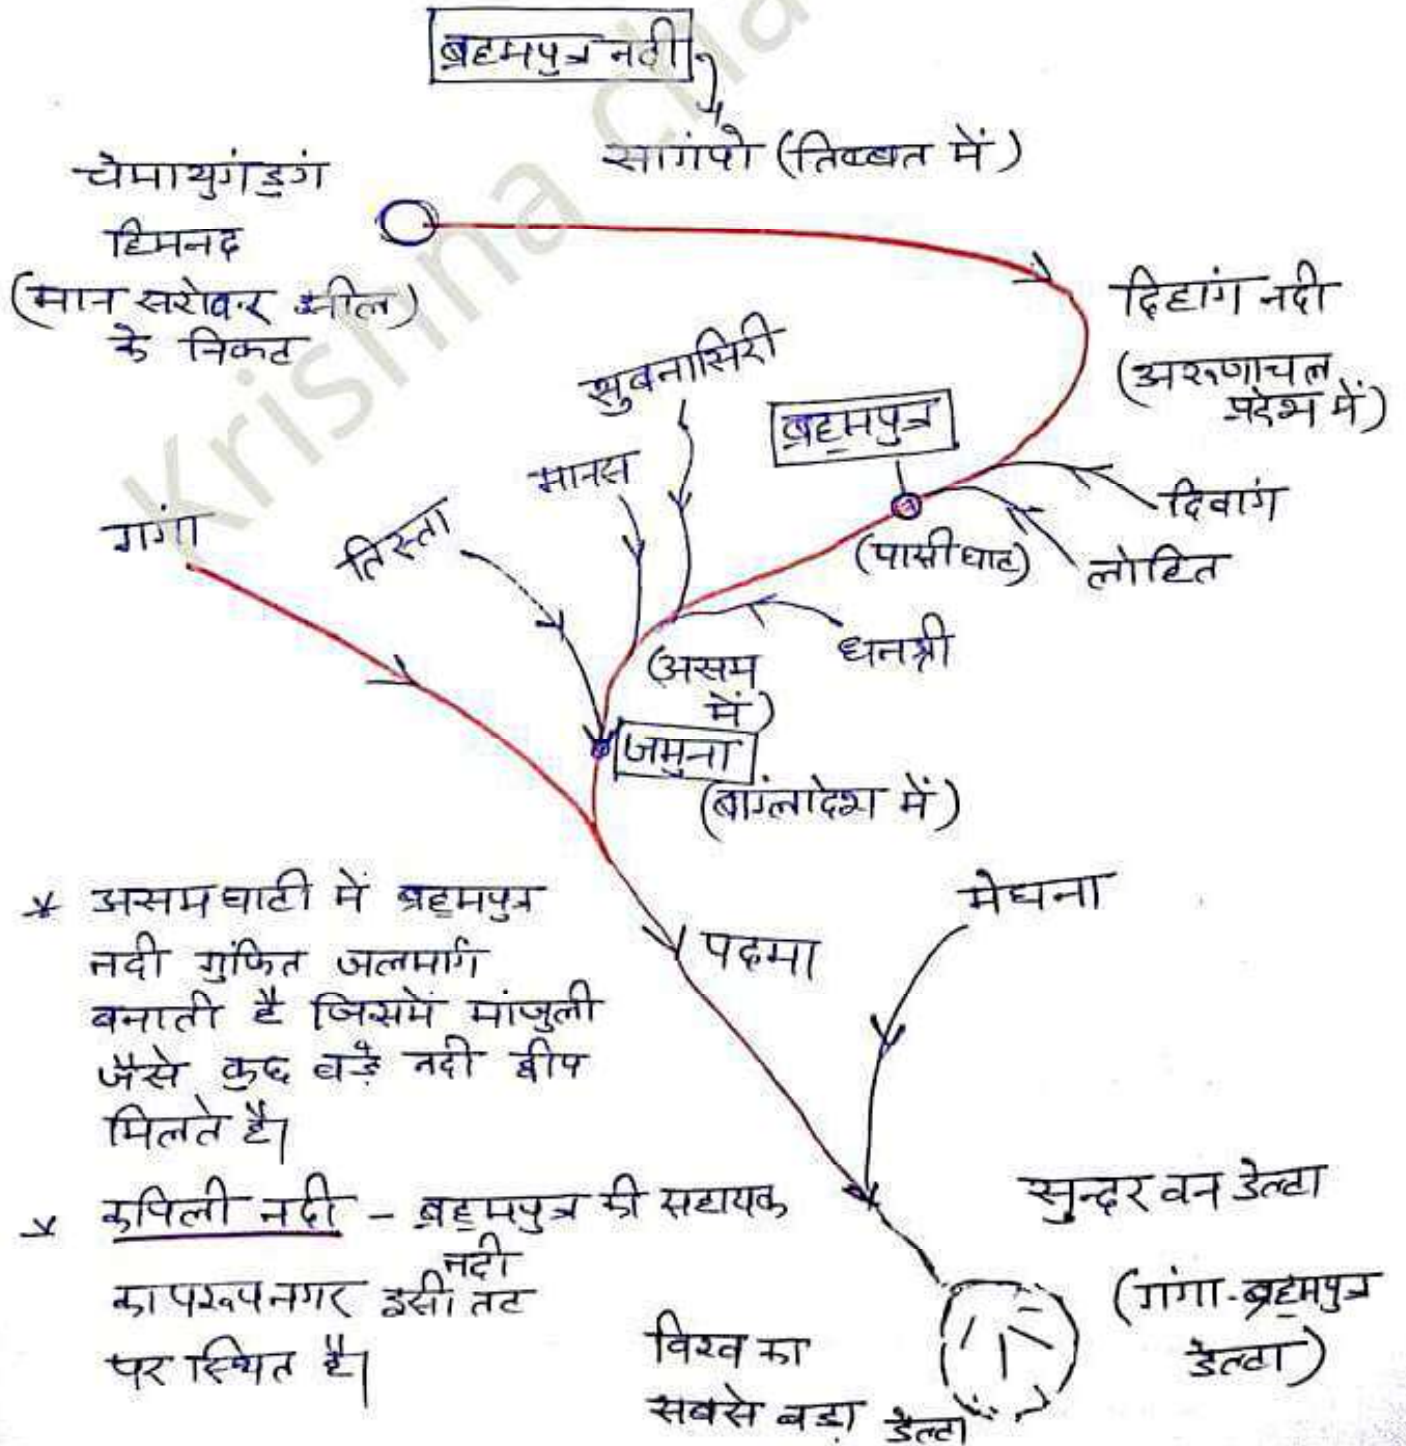 ब्रहमपुत्र नदी
सागंपो (तिब्बत में)
चेमायुगंडुगं
हिमनद
(मान सरोवर झील)
के निकट
दिहांग नदी
(अरूणाचल
प्रदेश में)
सुबनासिरी
ब्रह्मपुत्र
मानस
तिस्ता
गंगा
दिबांग
(पासीघाट)
लोहित
धनश्री
(असम
में)
जमुना
(बांग्लादेश में)
मेघना
पदमा
* असम घाटी में ब्रहमपुत्र
नदी गुंफित जलमार्ग
बनाती है जिसमें मांजुली
जैसे कुछ बड़े नदी द्वीप
मिलते है।
* कपिली नदी - ब्रह्मपुत्र की सहायक
नदी
कापरूपनगर इसी तट
पर स्थित है।
सुन्दर वन डेल्टा
(गंगा-ब्रह्मपुत्र
डेल्टा)
विश्व का
सबसे बड़ा डेल्टा
Krishna